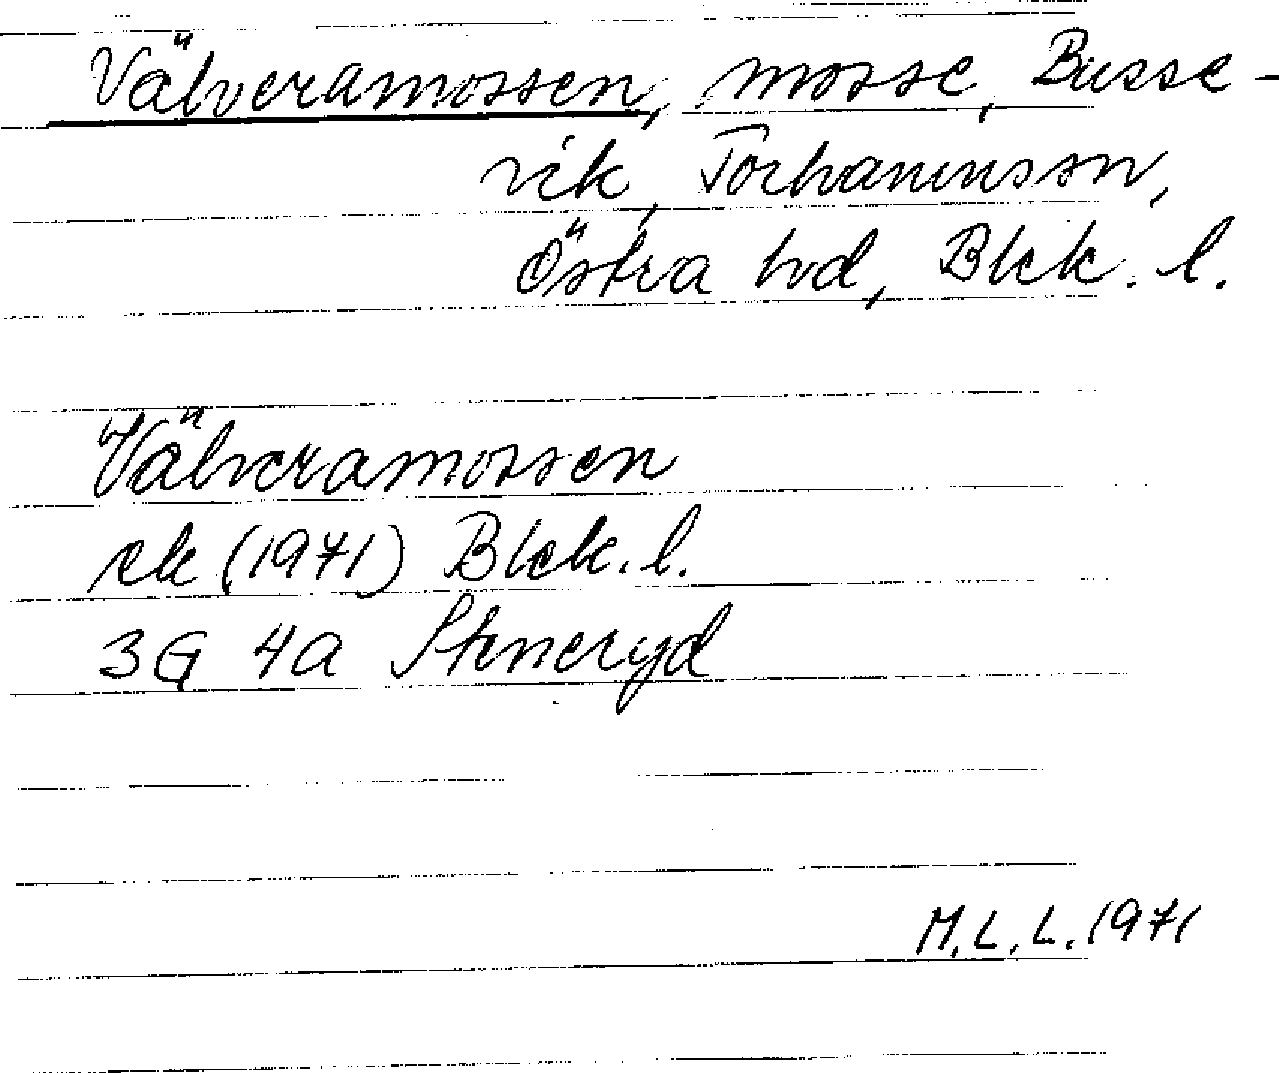 Välveramossen, mosse, Busse-
vik, Torhamnssn,
Östra hd, Blek. l.
Välveramossen
ek (1971) Blek. l.
3G 4a Steneryd
M.L.L. 1971